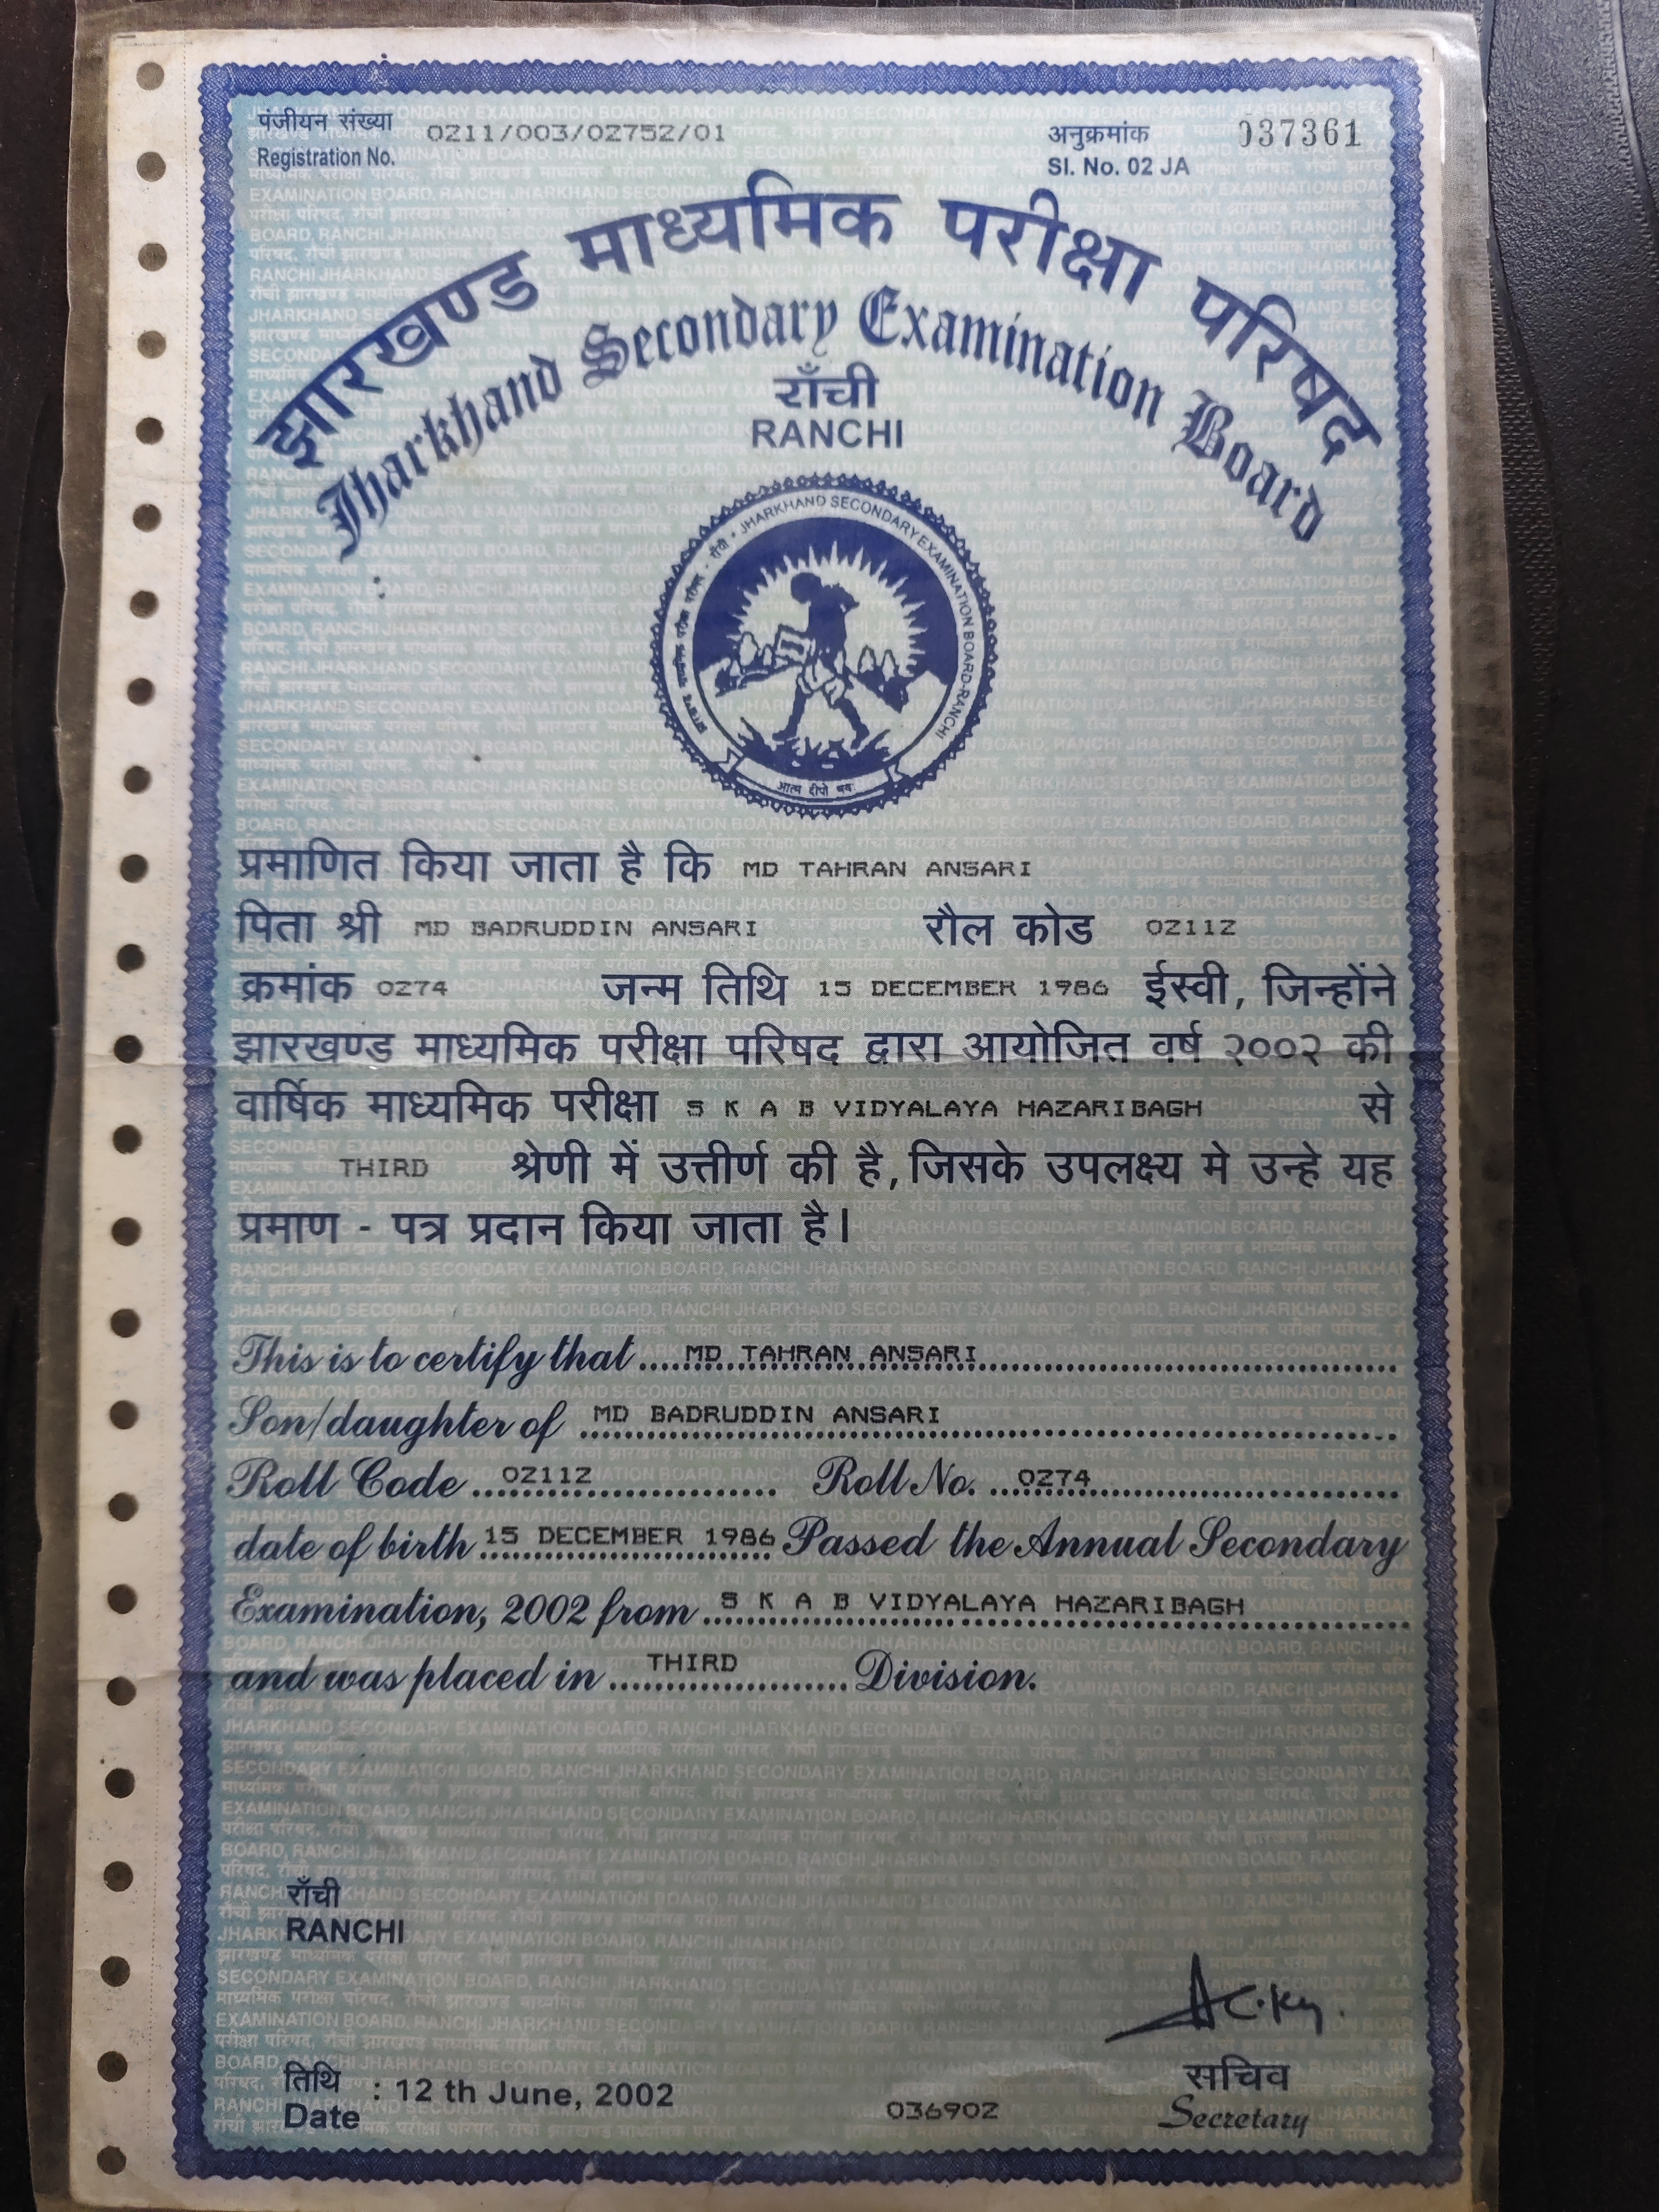 पंजीयन संख्या 0211/003/02752/01
Registration No.
अनुक्रमांक 037361
Sl. No. 02 JA
झारखण्ड माध्यमिक परीक्षा परिषद
Jharkhand Secondary Examination Board
राँची
RANCHI
झारखण्ड माध्यमिक परीक्षा परिषद - राँची • JHARKHAND SECONDARY EXAMINATION BOARD-RANCHI
आत्म दीपो भव
प्रमाणित किया जाता है कि MD TAHRAN ANSARI
पिता श्री MD BADRUDDIN ANSARI रौल कोड 02112
क्रमांक 0274 जन्म तिथि 15 DECEMBER 1986 ईस्वी, जिन्होंने
झारखण्ड माध्यमिक परीक्षा परिषद द्वारा आयोजित वर्ष २००२ की
वार्षिक माध्यमिक परीक्षा S K A B VIDYALAYA HAZARIBAGH से
THIRD श्रेणी में उत्तीर्ण की है, जिसके उपलक्ष्य मे उन्हे यह
प्रमाण - पत्र प्रदान किया जाता है।
This is to certify that ....MD TAHRAN ANSARI....
Son/daughter of MD BADRUDDIN ANSARI
Roll Code ...02112... Roll No. ...0274...
date of birth 15 DECEMBER 1986 Passed the Annual Secondary
Examination, 2002 from S K A B VIDYALAYA HAZARIBAGH
and was placed in ...THIRD... Division.
राँची
RANCHI
तिथि : 12 th June, 2002
Date
036902
सचिव
Secretary